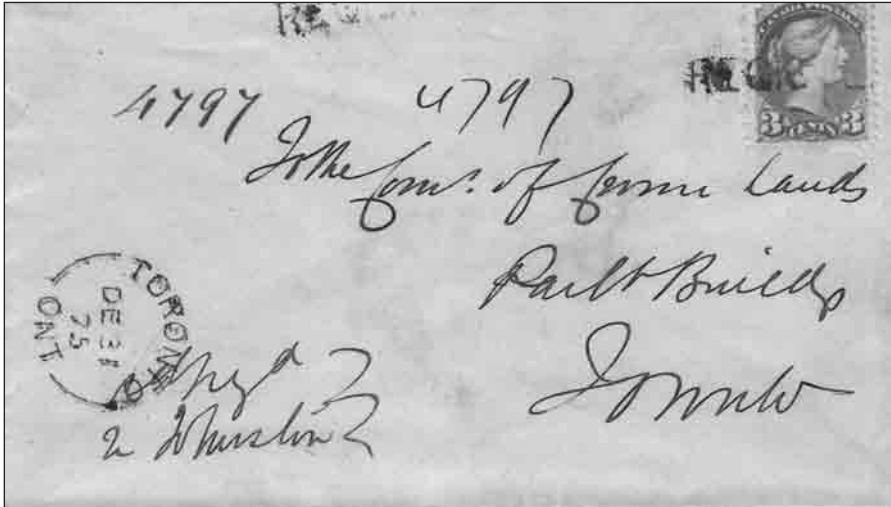 CANADA POSTAGE
3 CENTS 3
4797 4797
To the Comr. of Crown Lands
Parlt Buildgs
Toronto
TORONTO
DE 31
75
ONT
Johnston